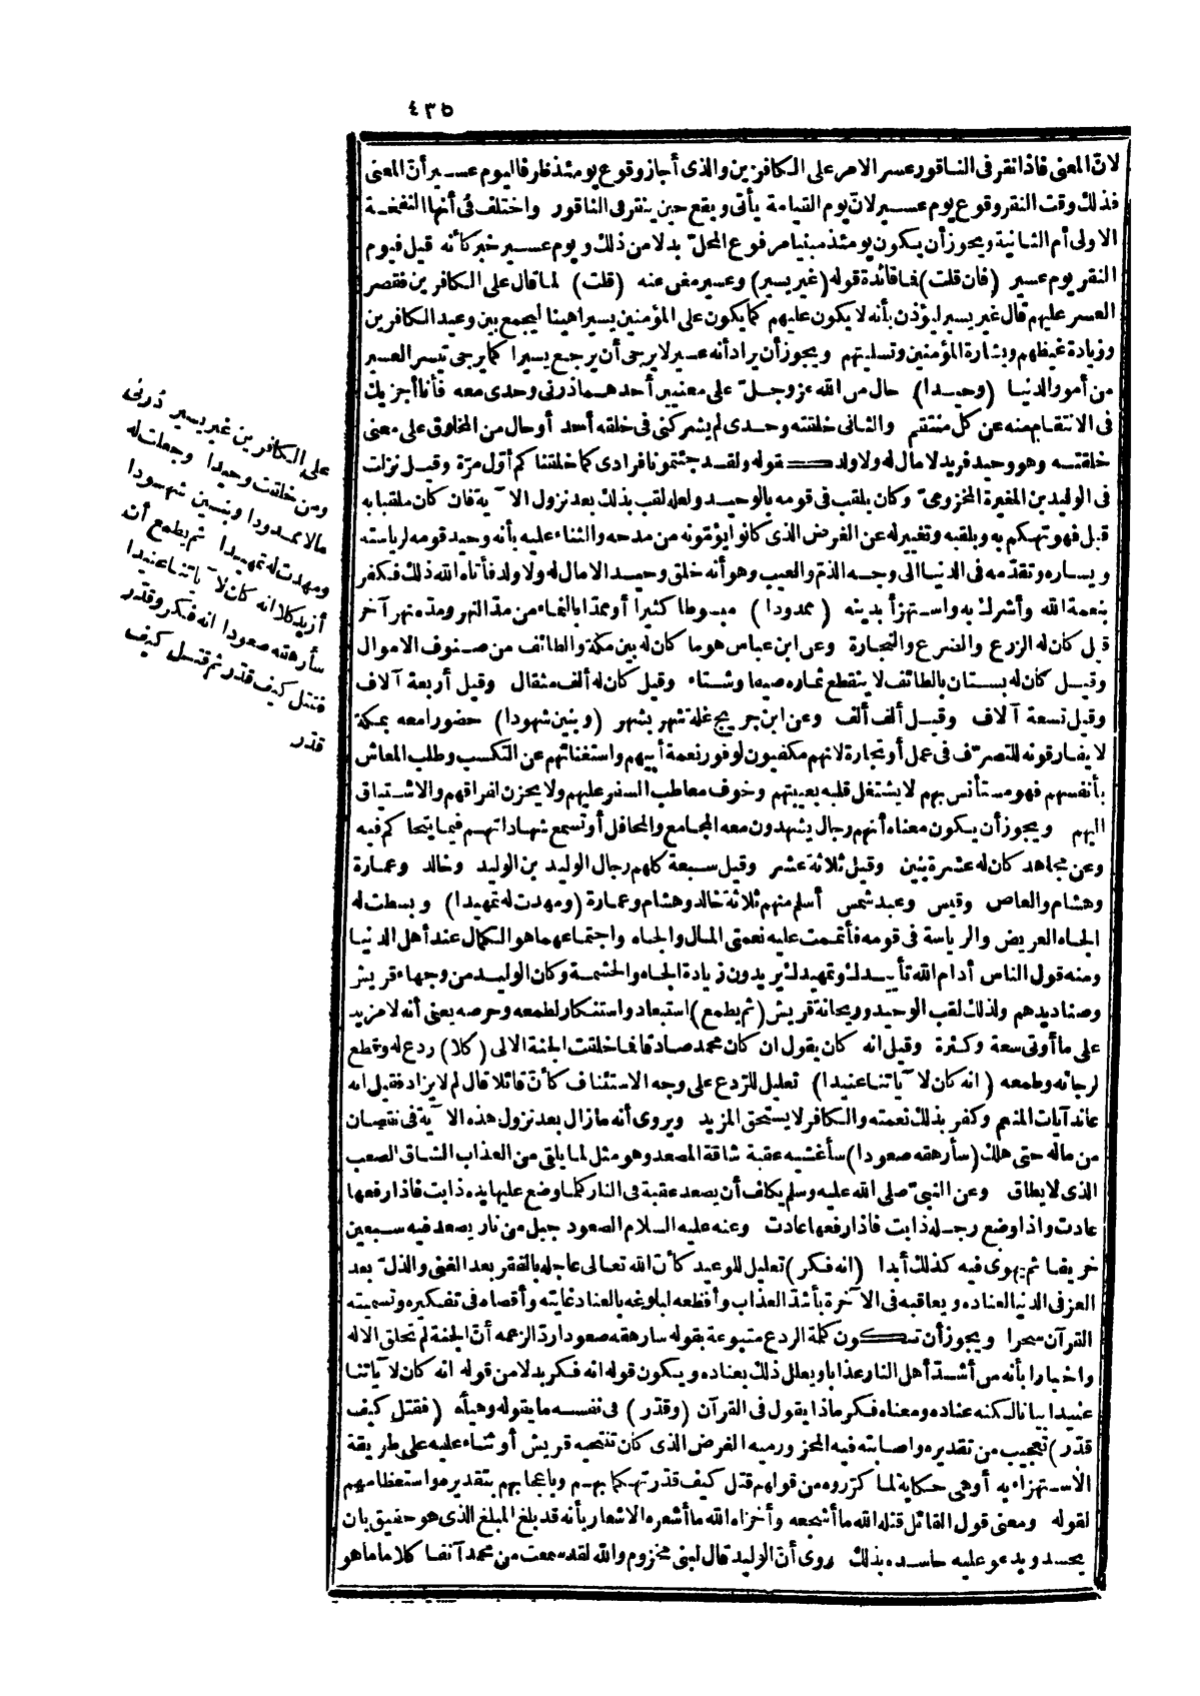 ٤٣٥
لانّ المعنى فاذا نقر فى الناقور عسر الامر على الكافرين والذى أجاز وقوع يومئذ ظرفا ليوم عسير أنّ المعنى
فذلك وقت النقر وقوع يوم عسير لانّ يوم القيامة يأتى ويقع حين ينقر فى الناقور واختلف فى أنها النفخة
الاولى أم الثانية ويجوز أن يكون يومئذ مبنيا مرفوع المحلّ بدلا من ذلك ويوم عسير خبر كأنه قيل فيوم
النقر يوم عسير (فان قلت) فما فائدة قوله (غير يسير) وعسير مغن عنه (قلت) لما قال على الكافرين فقصر
العسر عليهم قال غير يسير ليؤذن بأنه لا يكون عليهم كما يكون على المؤمنين يسيرا هينا ليجمع بين وعيد الكافرين
وزيادة غيظهم وبشارة المؤمنين وتسليتهم ويجوز أن يراد أنه عسير لا يرجى أن يرجع يسيرا كما يرجى تيسر العسير
من أمور الدنيا (وحيدا) حال من الله عز وجلّ على معنيين أحدهما ذرنى وحدى معه فأنا أجزيك
فى الانتقام منه عن كل منتقم والثانى خلقته وحدى لم يشركنى فى خلقه أحد أو حال من المخلوق على معنى
خلقته وهو وحيد فريد لا مال له ولا ولد كقوله ولقد جئتمونا فرادى كما خلقناكم أوّل مرّة وقيل نزلت
فى الوليد بن المغيرة المخزومىّ وكان يلقب فى قومه بالوحيد ولعله لقب بذلك بعد نزول الآية فان كان ملقبا به
قبل فهو تهكم به وبلقبه وتغيير له عن الغرض الذى كانوا يؤمّونه من مدحه والثناء عليه بأنه وحيد قومه لرياسته
ويساره وتقدّمه فى الدنيا الى وجه الذمّ والعيب وهو أنه خلق وحيدا لا مال له ولا ولد فأتاه الله ذلك فكفر
بنعمة الله وأشرك به واستهزأ بدينه (ممدودا) مبسوطا كثيرا أو ممدّا بالنماء من مدّ النهر ومدّه نهر آخر
قيل كان له الزرع والضرع والتجارة وعن ابن عباس هو ما كان له بين مكة والطائف من صنوف الاموال
وقيل كان له بستان بالطائف لا ينقطع ثماره صيفا وشتاء وقيل كان له ألف مثقال وقيل أربعة آلاف
وقيل تسعة آلاف وقيل ألف ألف وعن ابن جريج غلة شهر بشهر (وبنين شهودا) حضورا معه بمكة
لا يفارقونه للتصرّف فى عمل أو تجارة لانهم مكفيون لوفور نعمة أبيهم واستغنائهم عن التكسب وطلب المعاش
بأنفسهم فهو مستأنس بهم لا يشتغل قلبه بغيبتهم وخوف معاطب السفر عليهم ولا يحزن لفراقهم والاشتياق
اليهم ويجوز أن يكون معناه أنهم رجال يشهدون معه المجامع والمحافل أو تسمع شهاداتهم فيما يتحاكم فيه
وعن مجاهد كان له عشرة بنين وقيل ثلاثة عشر وقيل سبعة كلهم رجال الوليد بن الوليد وخالد وعمارة
وهشام والعاص وقيس وعبد شمس أسلم منهم ثلاثة خالد وهشام وعمارة (ومهدت له تمهيدا) وبسطت له
الجاه العريض والرياسة فى قومه فأتممت عليه نعمتى المال والجاه واجتماعهما هو الكمال عند أهل الدنيا
ومنه قول الناس أدام الله تأييدك وتمهيدك يريدون زيادة الجاه والحشمة وكان الوليد من وجهاء قريش
وصناديدهم ولذلك لقب الوحيد وريحانة قريش (ثم يطمع) استبعاد واستنكار لطمعه وحرصه يعنى أنه لا مزيد
على ما أوتى سعة وكثرة وقيل انه كان يقول ان كان محمد صادقا فما خلقت الجنة الا لى (كلا) ردع له وقطع
لرجائه وطمعه (انه كان لآياتنا عنيدا) تعليل للردع على وجه الاستئناف كأنّ قائلا قال لم لا يزاد فقيل انه
عاند آيات المنعم وكفر بذلك نعمته والكافر لا يستحق المزيد ويروى أنه ما زال بعد نزول هذه الآية فى نقصان
من ماله حتى هلك (سأرهقه صعودا) سأغشيه عقبة شاقة المصعد وهو مثل لما يلقى من العذاب الشاق الصعب
الذى لا يطاق وعن النبىّ صلى الله عليه وسلم يكلف أن يصعد عقبة فى النار كلما وضع عليها يده ذابت فاذا رفعها
عادت واذا وضع رجله ذابت فاذا رفعها عادت وعنه عليه السلام الصعود جبل من نار يصعد فيه سبعين
خريفا ثم يهوى فيه كذلك أبدا (انه فكر) تعليل للوعيد كأنّ الله تعالى عاجله بالفقر بعد الغنى والذلّ بعد
العز فى الدنيا لعناده ويعاقبه فى الآخرة بأشدّ العذاب وأفظعه لبلوغه بالعناد غايته وأقصاه فى تفكيره وتسميته
القرآن سحرا ويجوز أن تكون كلمة الردع متبوعة بقوله سأرهقه صعودا ردّا لزعمه أنّ الجنة لم تخلق الا له
واخبارا بأنه من أشدّ أهل النار عذابا ويعلل ذلك بعناده ويكون قوله انه فكر بدلا من قوله انه كان لآياتنا
عنيدا بيانا لكنه عناده ومعناه فكر ماذا يقول فى القرآن (وقدّر) فى نفسه ما يقوله وهيأه (فقتل كيف
قدّر) تعجيب من تقديره واصابته فيه المحز ورميه الغرض الذى كان تنتحيه قريش أو ثناء عليه على طريقة
الاستهزاء به أو هى حكاية لما كرّروه من قولهم قتل كيف قدّر تهكما بهم وباعجابهم بتقديره واستعظامهم
لقوله ومعنى قول القائل قتله الله ما أشجعه وأخزاه الله ما أشعره الاشعار بأنه قد بلغ المبلغ الذى هو حقيق بأن
يحسد ويدعو عليه حاسده بذلك روى أنّ الوليد قال لبنى مخزوم والله لقد سمعت من محمد آنفا كلاما ما هو
على الكافرين غير يسير ذرنى
ومن خلقت وحيدا وجعلت له
مالا ممدودا وبنين شهودا
ومهدت له تمهيدا ثم يطمع أن
أزيد كلا انه كان لآياتنا عنيدا
سأرهقه صعودا انه فكر وقدّر
فقتل كيف قدّر ثم قتل كيف
قدّر